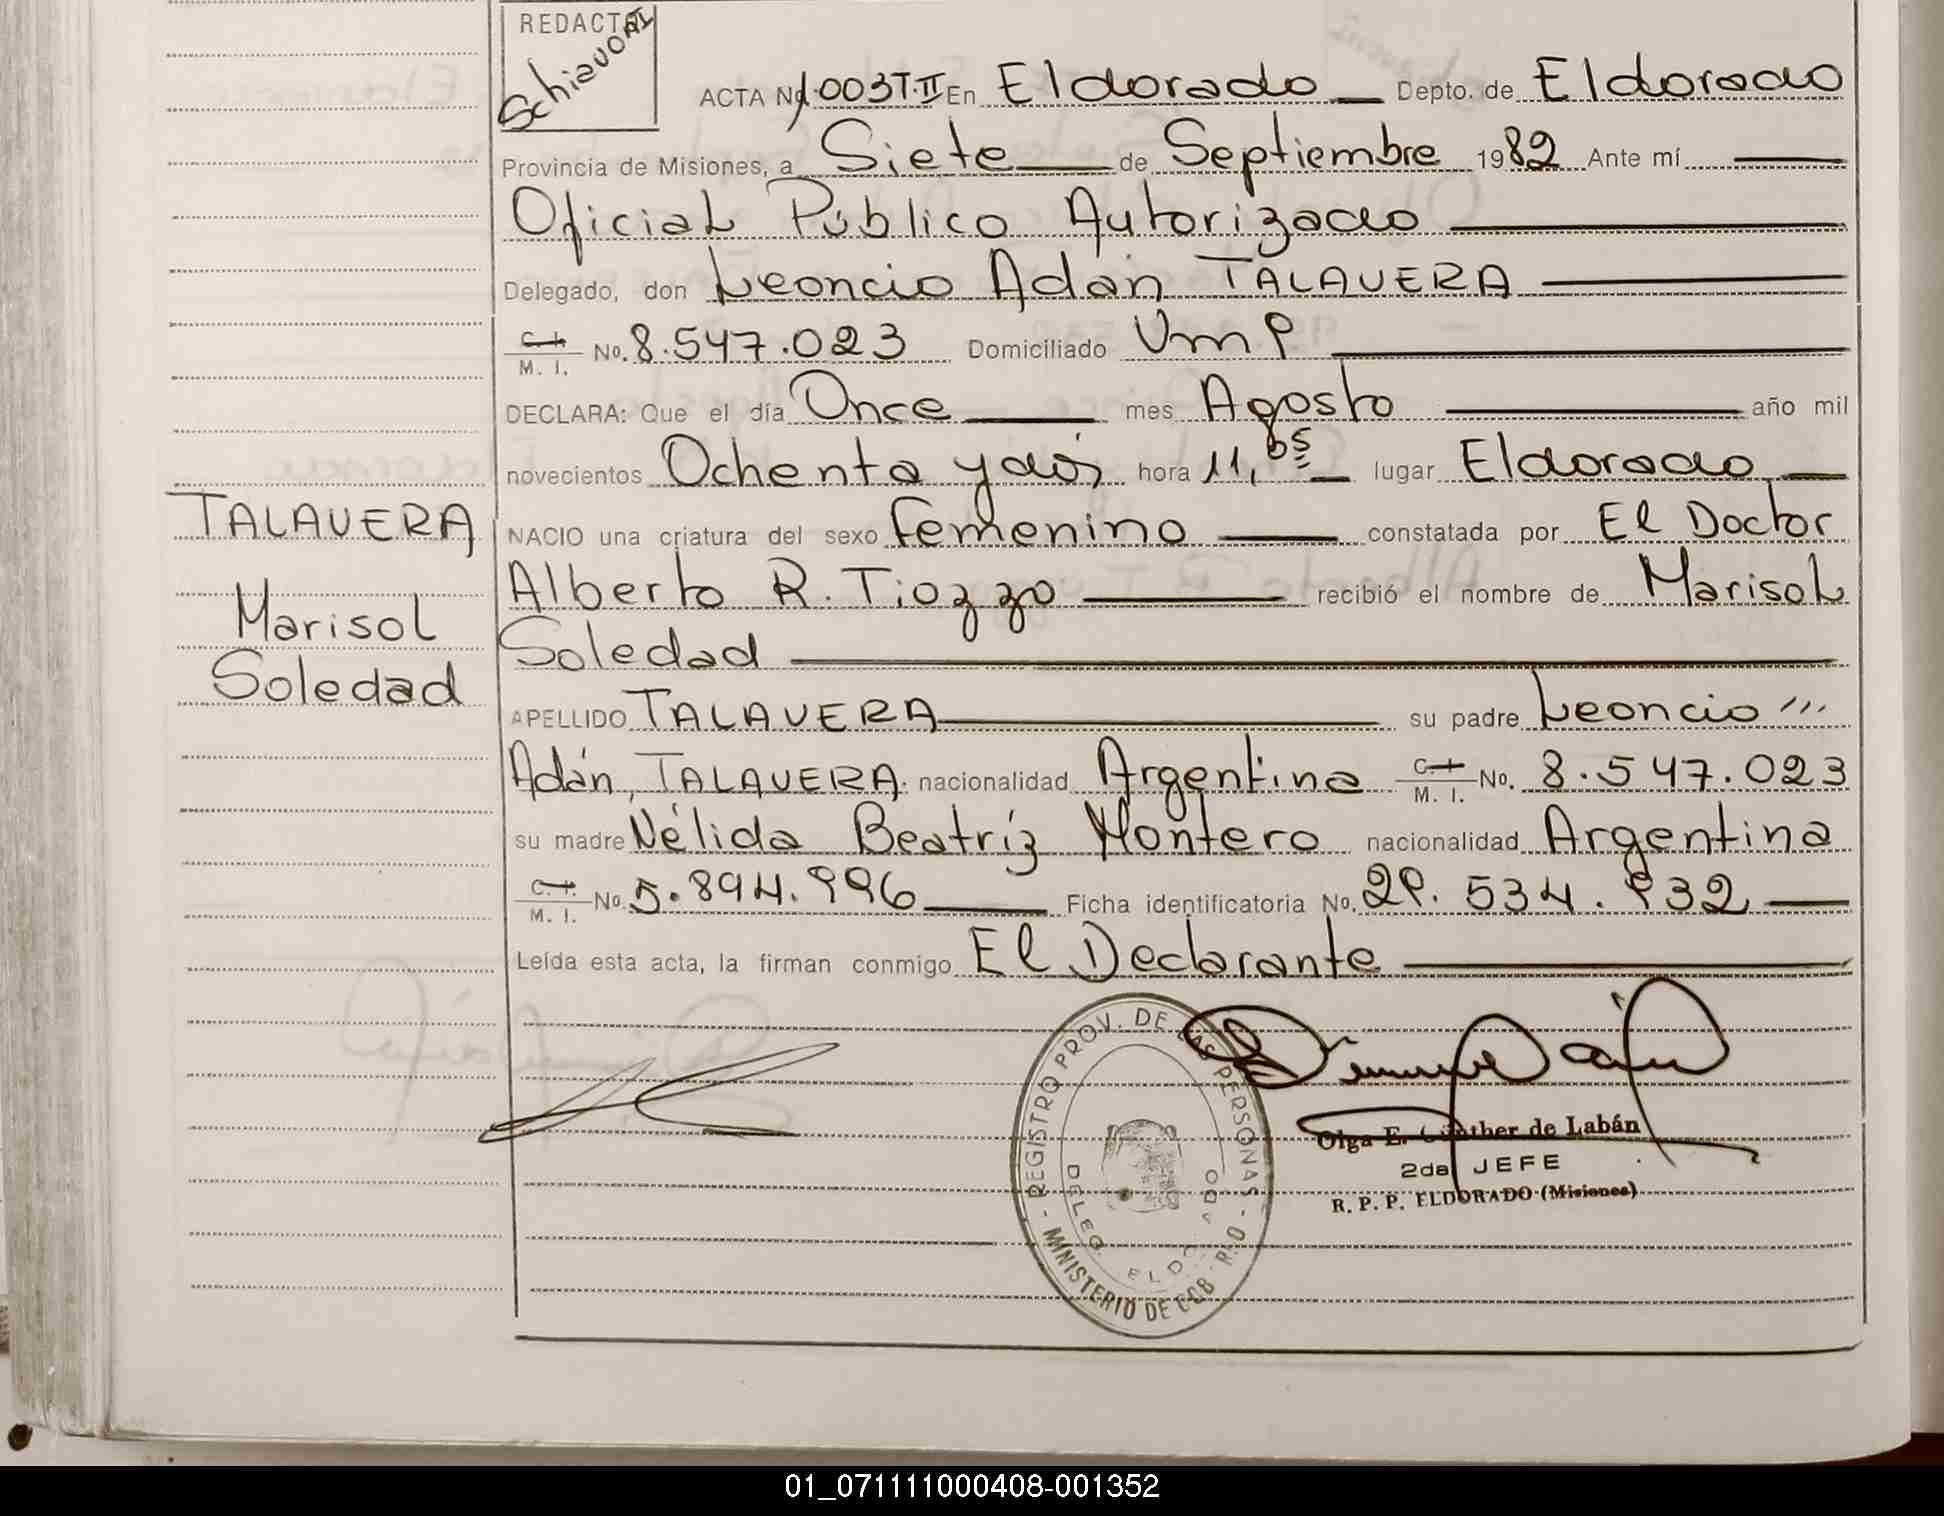 REDACTÓ
Schiavoni
ACTA Nº 1.003 T.II En Eldorado Depto. de Eldorado
Provincia de Misiones, a Siete de Septiembre 1982 Ante mí
Oficial Público Autorizado
Delegado, don Leoncio Adán TALAVERA
C. I. M. I. No. 8.547.023 Domiciliado VmP
DECLARA: Que el día Once mes Agosto año mil
novecientos Ochenta y dos hora 11,05 lugar Eldorado
NACIO una criatura del sexo Femenino constatada por El Doctor
Alberto R. Tiozzo recibió el nombre de Marisol
Soledad
APELLIDO TALAVERA su padre Leoncio
Adán, TALAVERA. nacionalidad Argentina C. I. M. I. No. 8.547.023
su madre Nélida Beatríz Montero nacionalidad Argentina
C. I. M. I. No. 5.894.996 Ficha identificatoria No. 29.534.932
Leída esta acta, la firman conmigo El Declarante
TALAVERA
Marisol
Soledad
REGISTRO PROV. DE LAS PERSONAS
MINISTERIO DE GOB.
DELEG. ELDORADO
Olga E. Günther de Labán
2da JEFE
R. P. P. ELDORADO (Misiones)
01_071111000408-001352